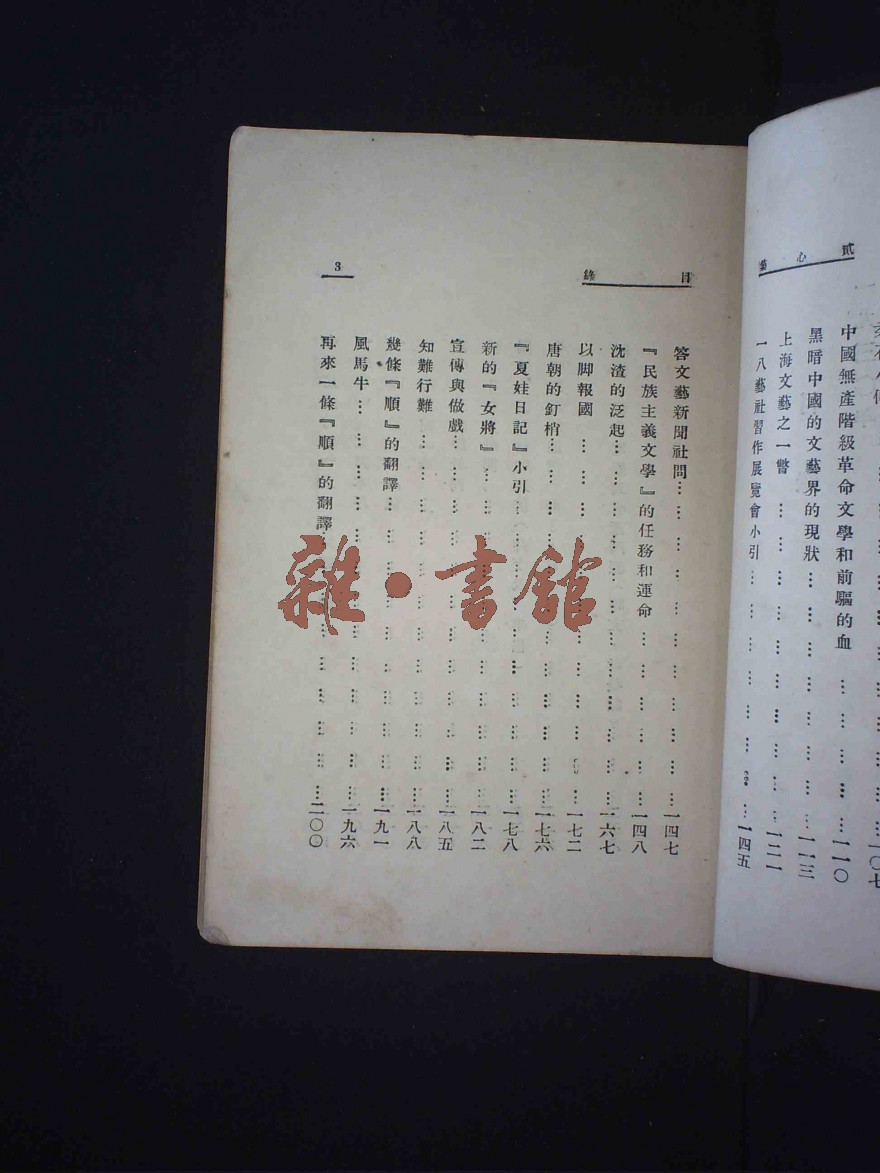 貳心集
柔石小傳……一〇七
中國無產階級革命文學和前驅的血……一一〇
黑暗中國的文藝界的現狀……一一三
上海文藝之一瞥……一二一
一八藝社習作展覽會小引……一四五
目錄
3
答文藝新聞社問……一四七
『民族主義文學』的任務和運命……一四八
沈渣的泛起……一六七
以脚報國……一七二
唐朝的釘梢……一七六
『夏娃日記』小引……一七八
新的『女將』……一八二
宣傳與做戲……一八五
知難行難……一八八
幾條『順』的翻譯……一九一
風馬牛……一九六
再來一條『順』的翻譯……二〇〇
雜·書館